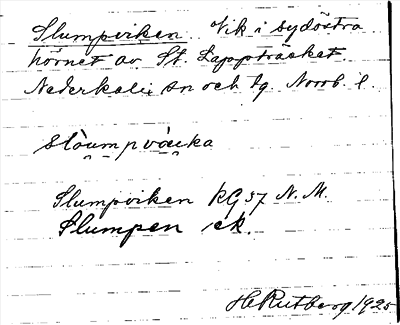 Slumpviken. Vik i sydöstra
hörnet av St. Lappträsket.
Nederkalix sn och tg. Norrb. l.
slòumpvi̯ka
Slumpviken KG 57 N. M.
Slumpen ek.
H Rutberg 1925